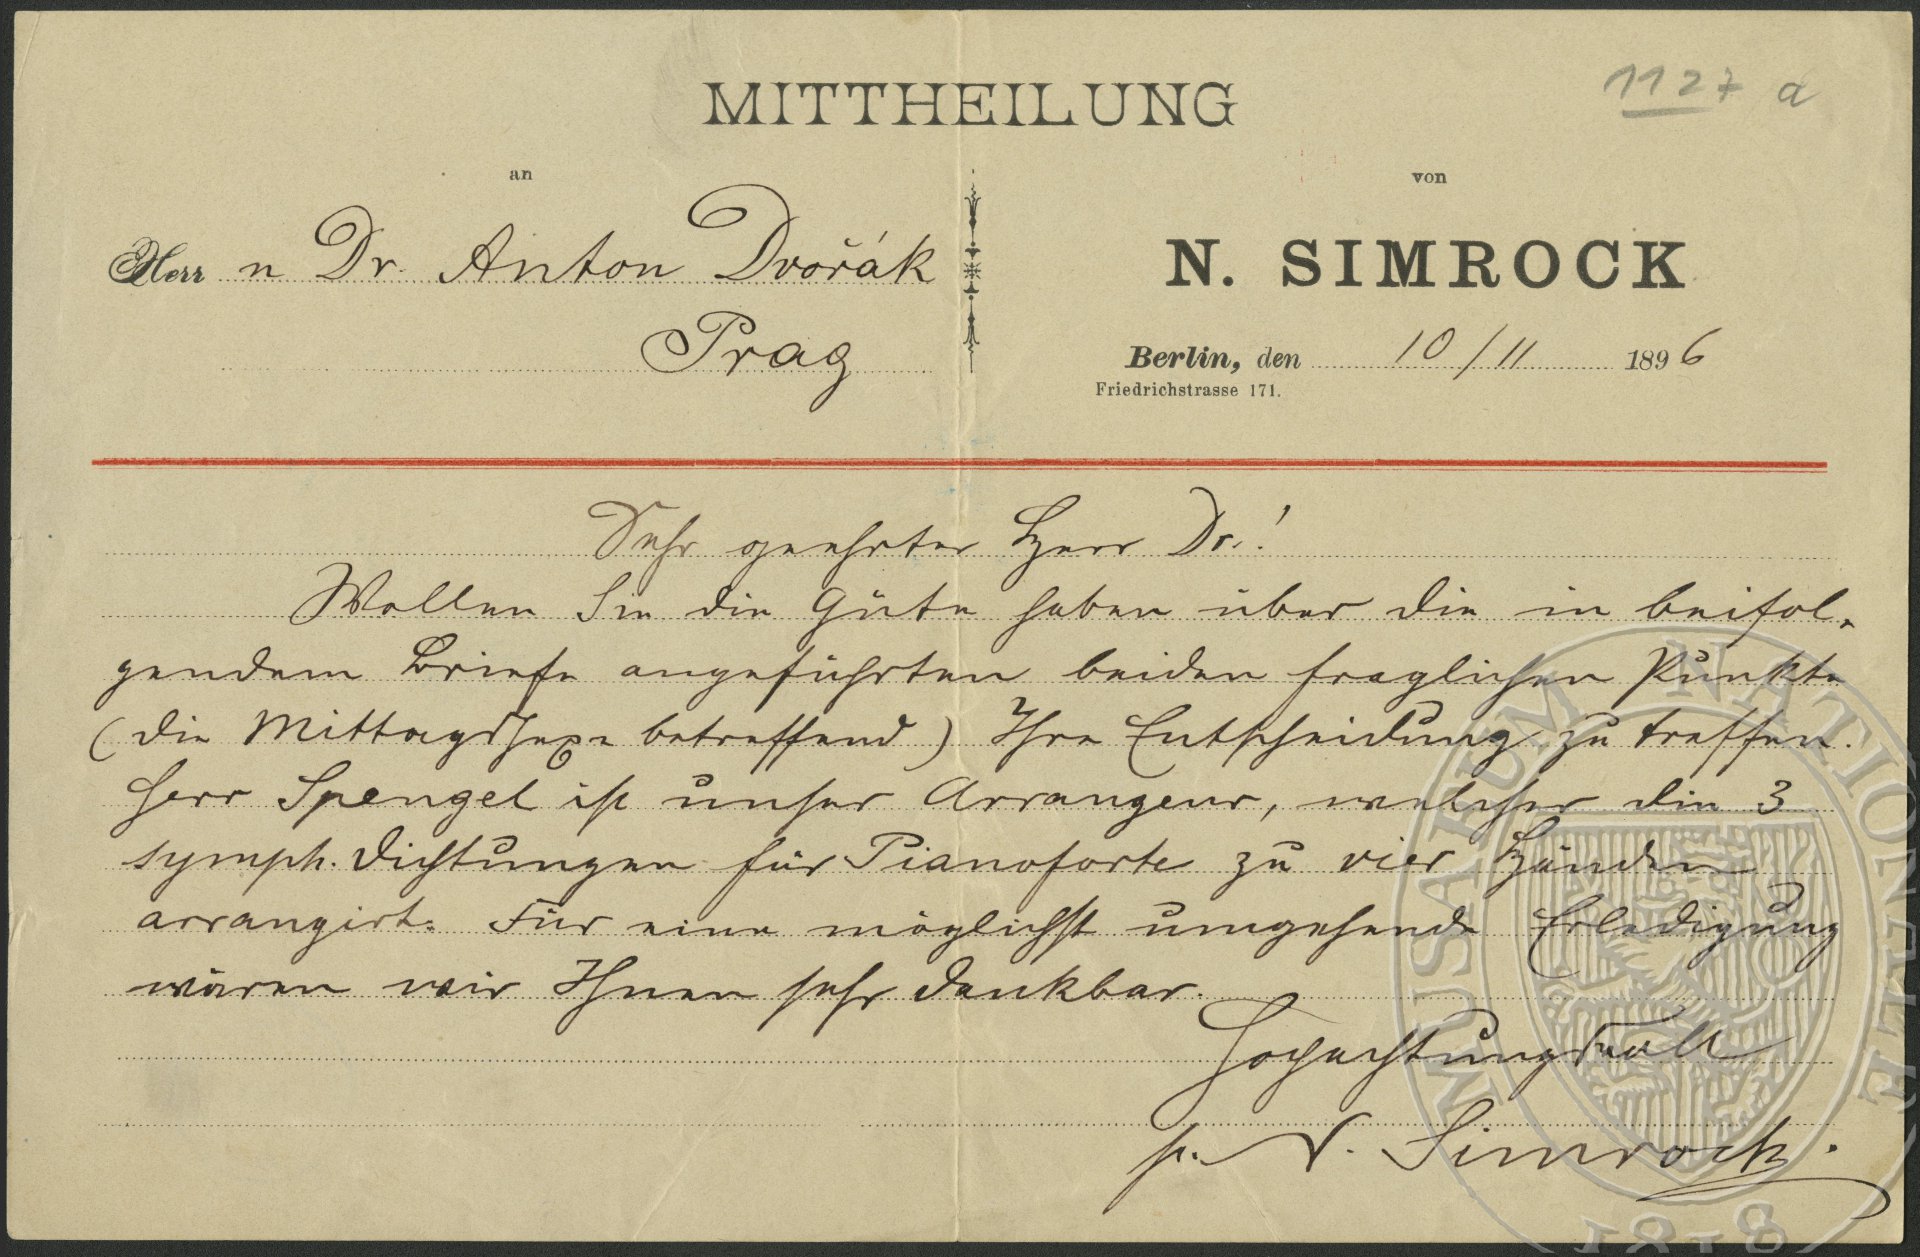 MITTHEILUNG
1127 a
an
von
Herr n Dr. Anton Dvořák
N. SIMROCK
Prag
Berlin, den 10/11 1896
Friedrichstrasse 171.
Sehr geehrter Herr Dr.!
Wollen Sie die Güte haben über die in beifol-
gendem Briefe angeführten beiden fraglichen Punkte
(die Mittagshexe betreffend) Ihre Entscheidung zu treffen.
Herr Spengel ist unser Arrangeur, welcher die 3
symph. Dichtungen für Pianoforte zu vier Händen
arrangirt. Für eine möglichst umgehende Erledigung
wären wir Ihnen sehr dankbar.
Hochachtungsvoll
p. N. Simrock.
MUSAEUM NATIONALE
1818